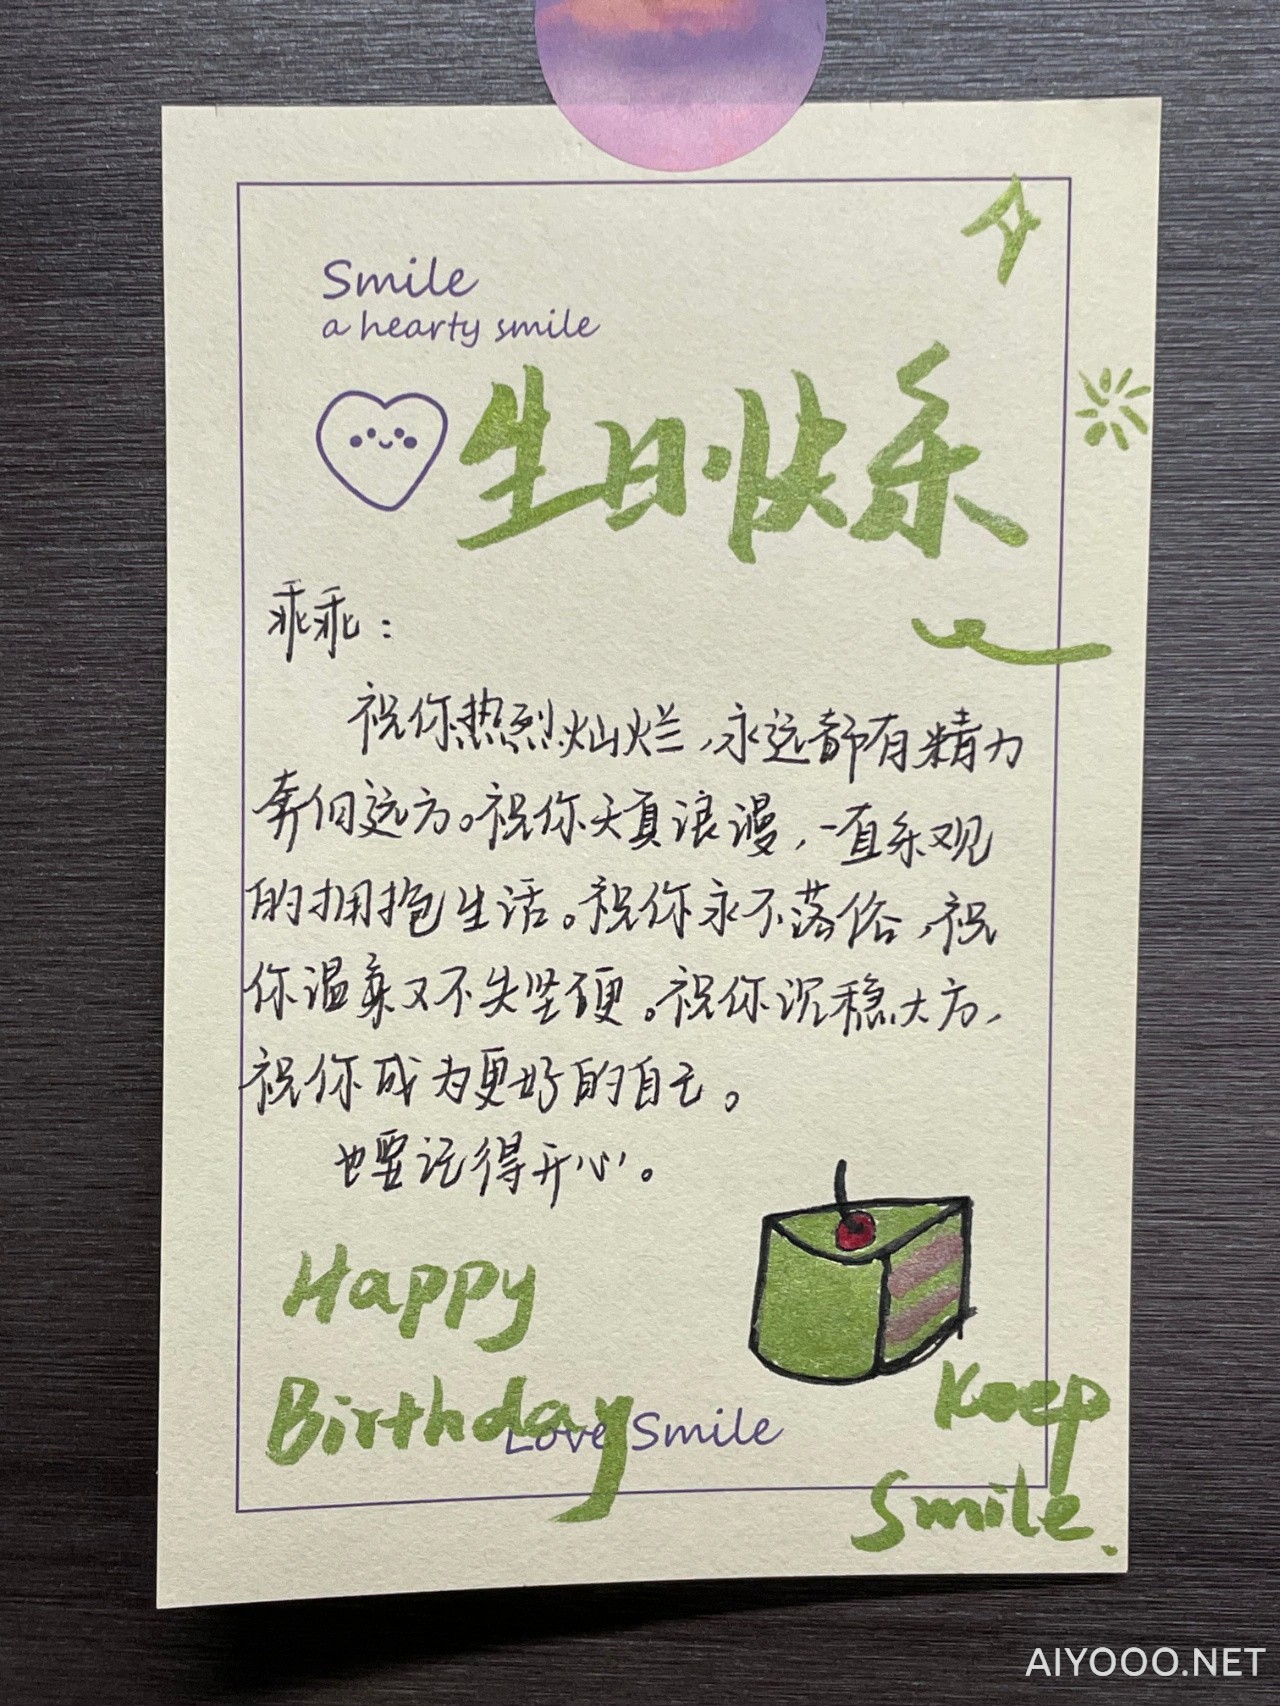 Smile
a hearty smile
生日快乐
乖乖：
祝你热烈灿烂，永远都有精力
奔向远方。祝你天真浪漫，一直乐观
的拥抱生活。祝你永不落俗，祝
你温柔又不失坚硬。祝你沉稳大方，
祝你成为更好的自己。
也要记得开心。
Happy
Birthday
Love Smile
Keep
Smile.
AIYOOO.NET